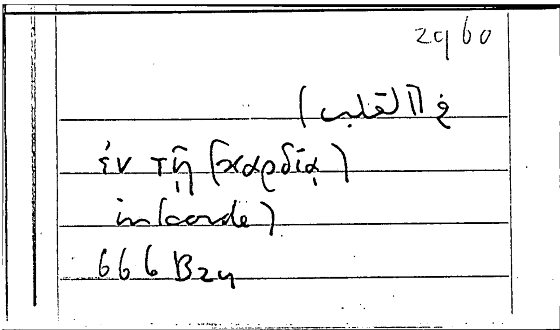 2960
في (القلب)
ἐν τῇ (καρδίᾳ)
in (corde)
666 B24